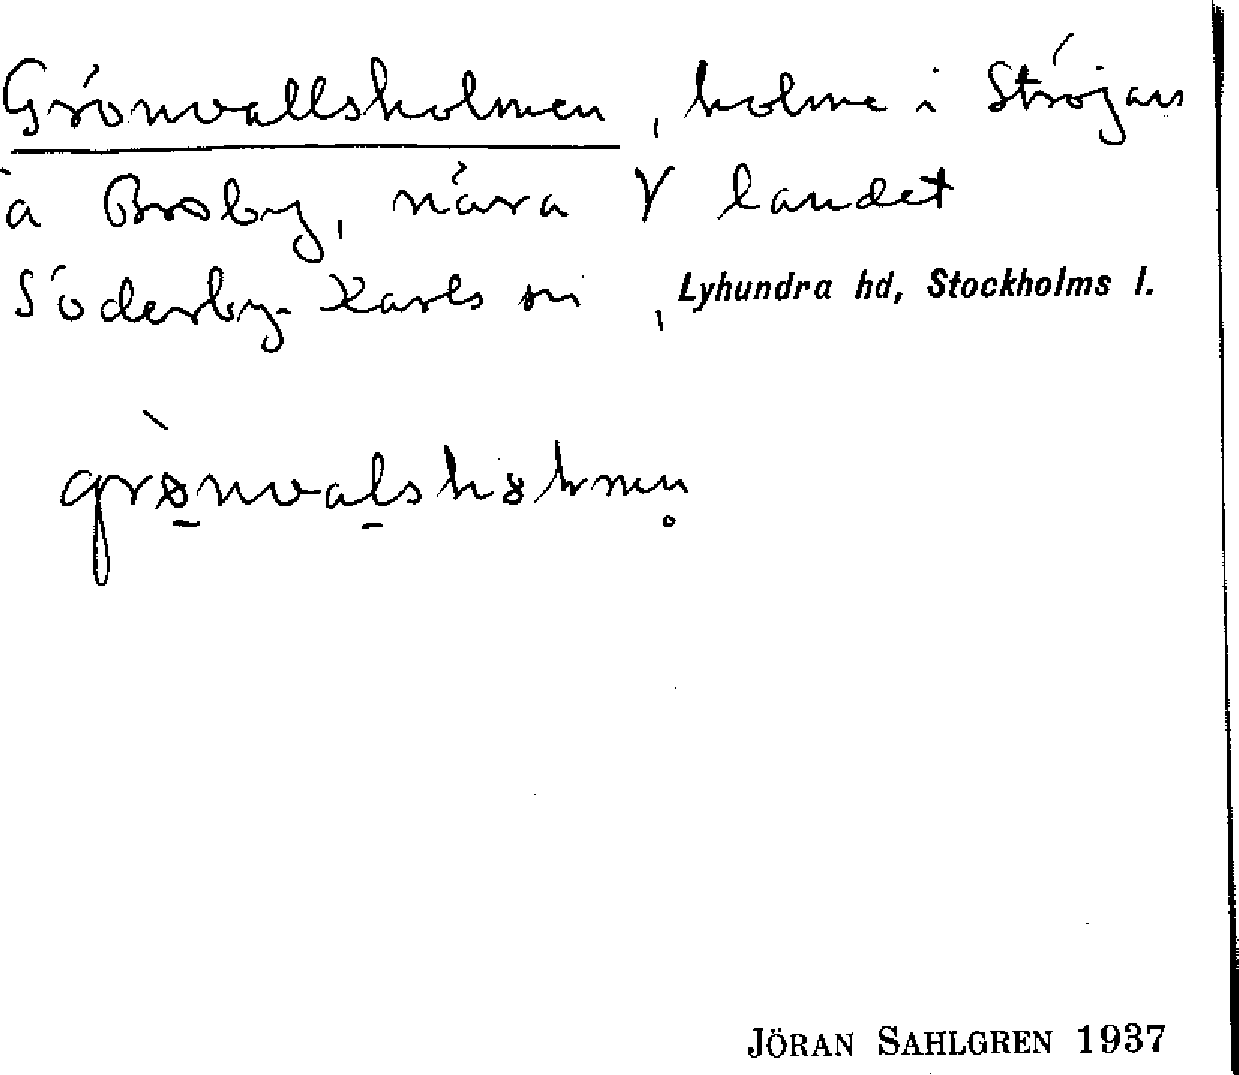 Grönvallsholmen, holme i Ströjan
å Broby, nära V landet
Söderby-Karls sn, Lyhundra hd, Stockholms l.
JÖRAN SAHLGREN 1937